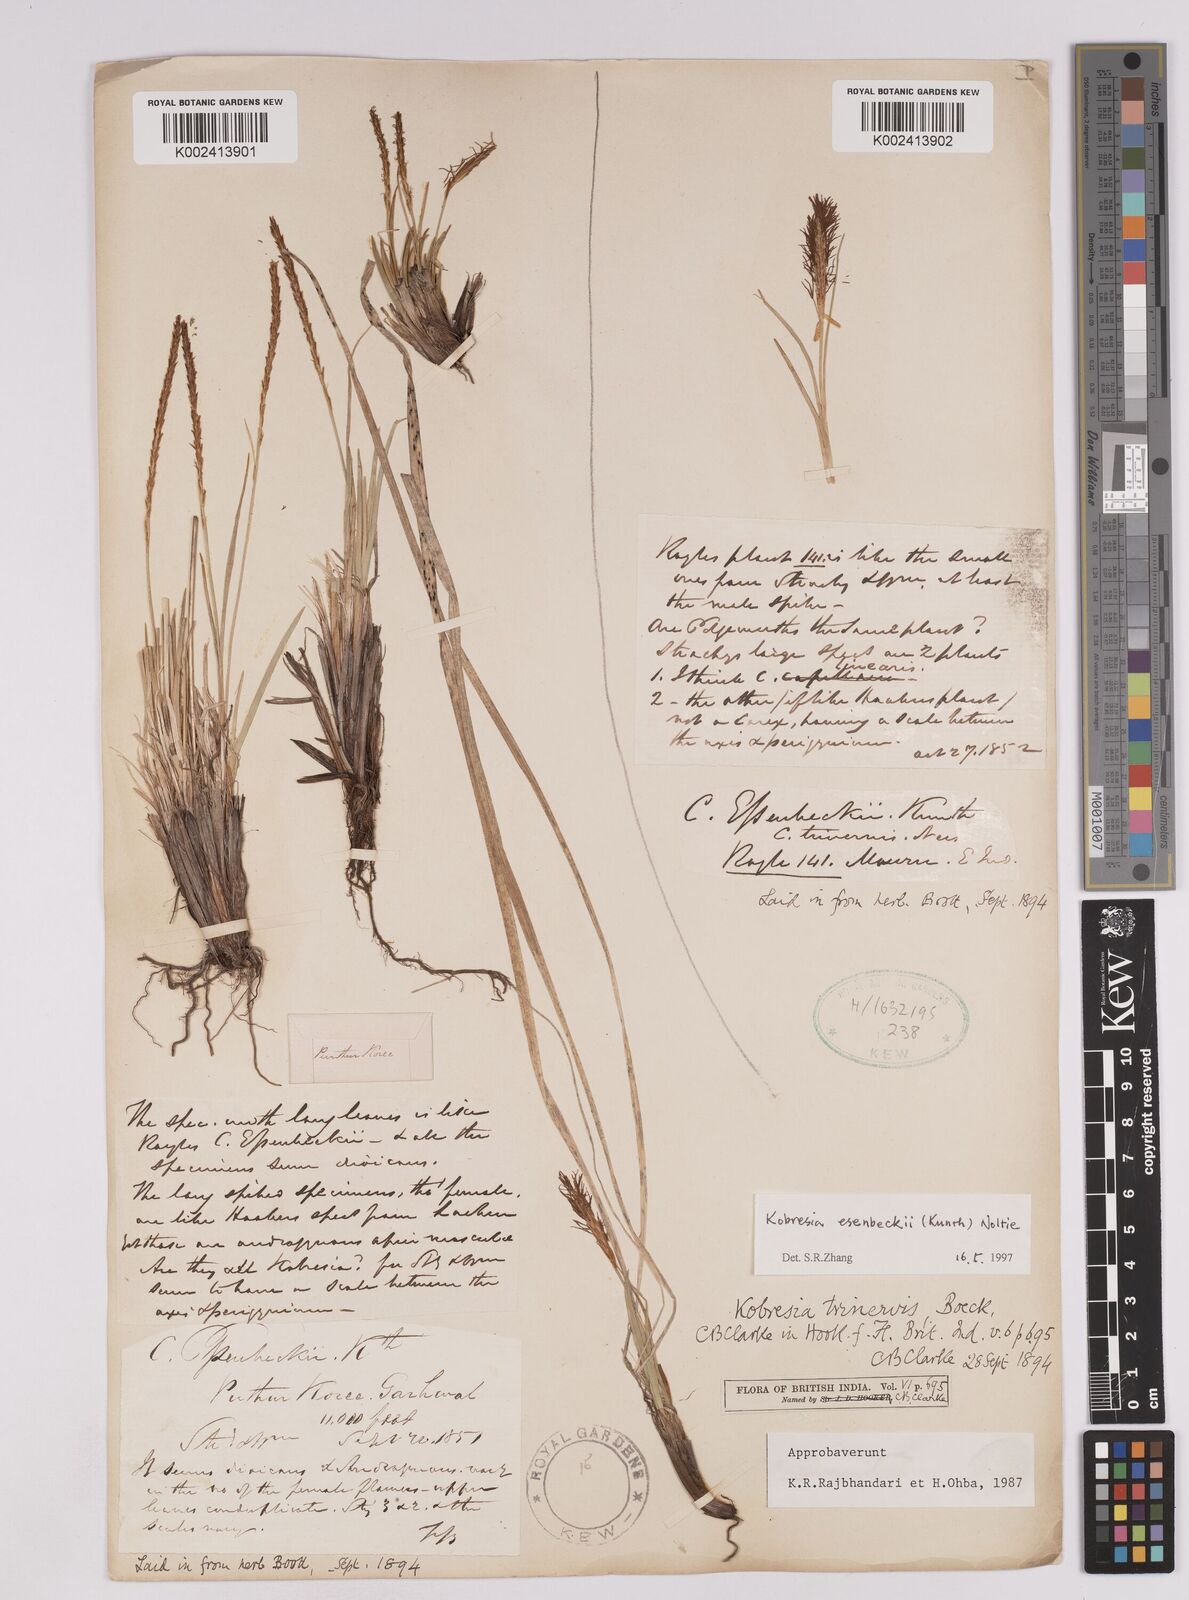 ROYAL BOTANIC GARDENS KEW
K002413901
ROYAL BOTANIC GARDENS KEW
K002413902
Royles plant 141. is like the small
ones from Strachy & Wm, at least
the male spike -
Are Edgeworths the same plant?
Strachys large spect are 2 plants
linearis.
1. I think C. capillacea -
2 - the other / if like Hookers plant /
not a Carex, having a scale between
the axis & perigynium.
oct 27. 1852
C. Essenbeckii. Kunth
C. trinervis. Nees
Royle 141. E Ind.
Laid in from herb. Boott, Sept. 1894
H/1632/95
238
KEW
Purthur Koree
The spec. with long leaves is like
Royles C. Essenbeckii - & all the
specimens seem dioicous.
The long spiked specimens, tho' female,
are like Hookers spect from Lachen
but those are androgynous apice masculae
Are they all Kobresia? for
seem to have a scale between the
axis & perigynium -
C. Essenbeckii. Kth
Purthur Koree. Garhwal
11,000 feet
1851
It seems dioicous & Androgynous. vary
in the no of the female flowers - upper
leaves conduplicate. Stig 3 & 2. & the
scales vary.
Laid in from herb Boott, Sept. 1894
Kobresia esenbeckii (Kunth) Noltie
Det. S.R.Zhang 16. 5. 1997
Kobresia trinervis, Boeck,
CBClarke in Hook. f. Fl. Brit. Ind. v. 6 p 695
CBClarke 28 Sept 1894
FLORA OF BRITISH INDIA. Vol. VI p. 695
Named by Sir J. D. HOOKER, CB. Clarke
Approbaverunt
K.R.Rajbhandari et H.Ohba, 1987
ROYAL GARDENS
16
KEW
inches
Density
Don Williams
M001007
centimeters
Kew
Royal Botanic Gardens
copyright reserved
0 1 2 3 4 5 6 7 8 9 10
cm